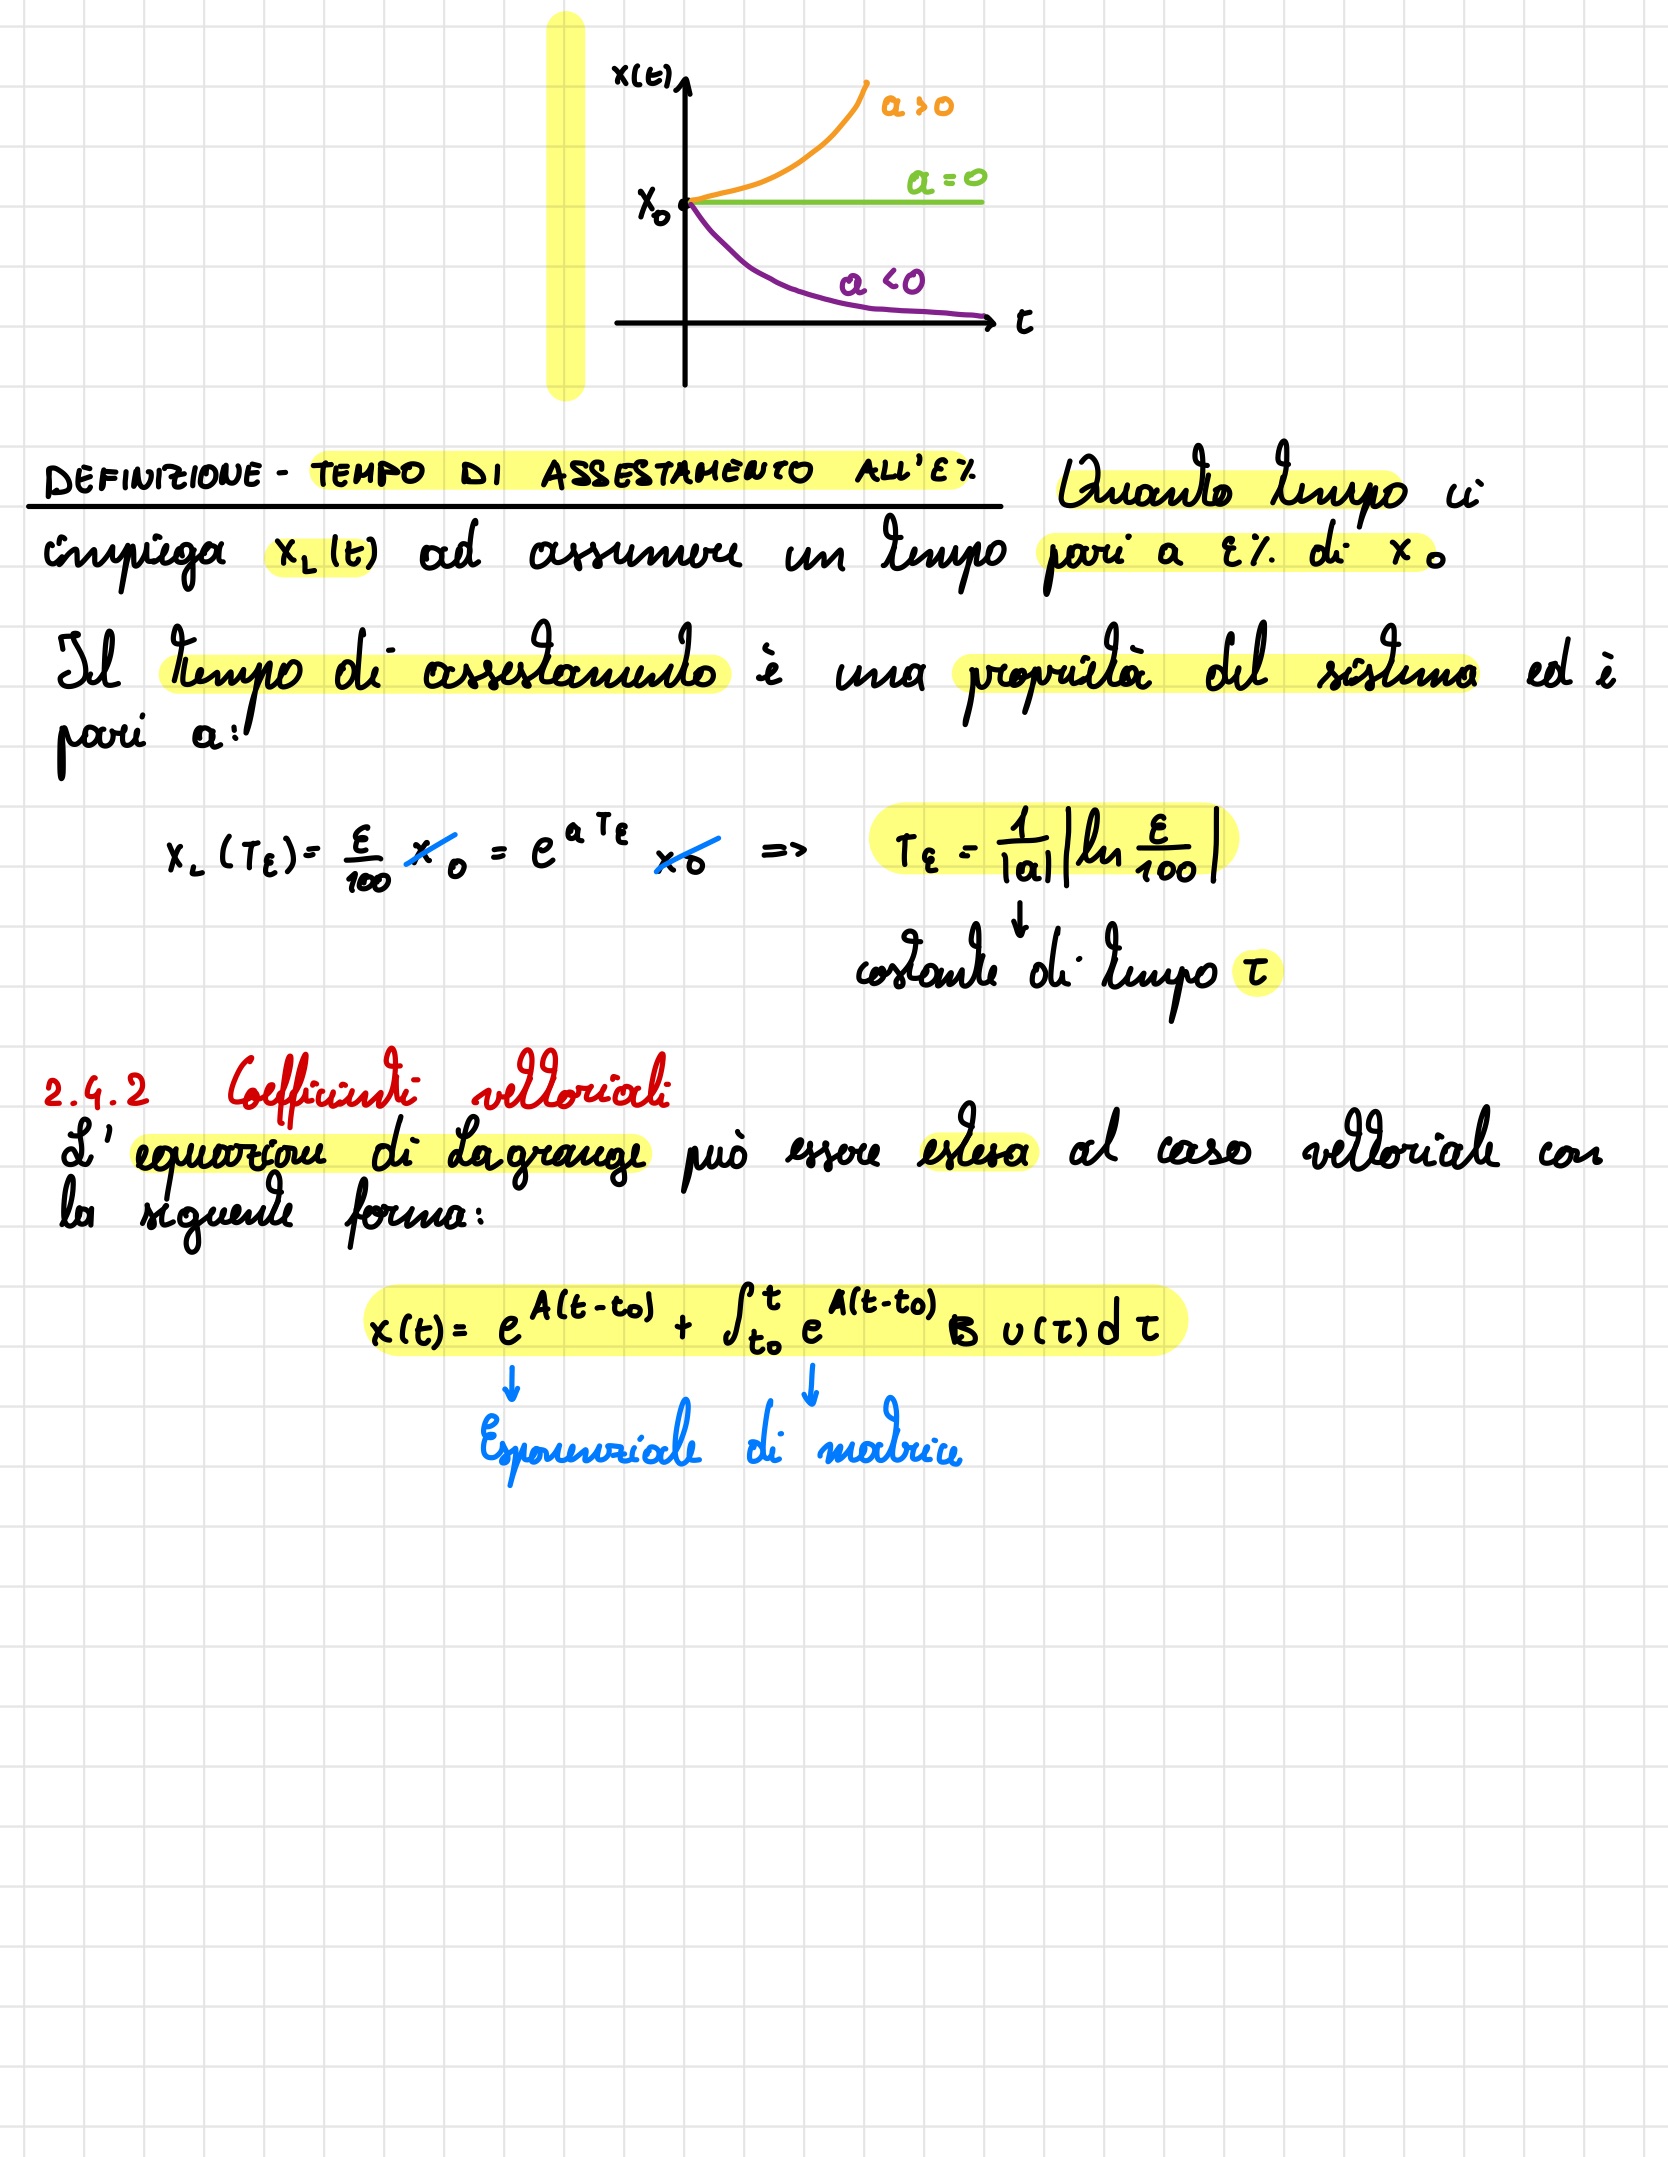 x(t)
a>0
a=0
X₀
a<0
t
DEFINIZIONE - TEMPO DI ASSESTAMENTO ALL'ε% Quanto tempo ci
impiega x_L(t) ad assumere un tempo pari a ε% di x₀
Il tempo di assestamento è una proprietà del sistema ed è
pari a:
x_L(T_ε) = ε/100 x₀ = e^{aT_ε} x₀ => T_ε = 1/|a| |ln ε/100|
↓
costante di tempo τ
2.4.2 Coefficienti vettoriali
L'equazione di Lagrange può essere estesa al caso vettoriale con
la seguente forma:
x(t) = e^{A(t-t₀)} + ∫_{t₀}^{t} e^{A(t-t₀)} B u(τ) dτ
↓ ↓
Esponenziale di matrice